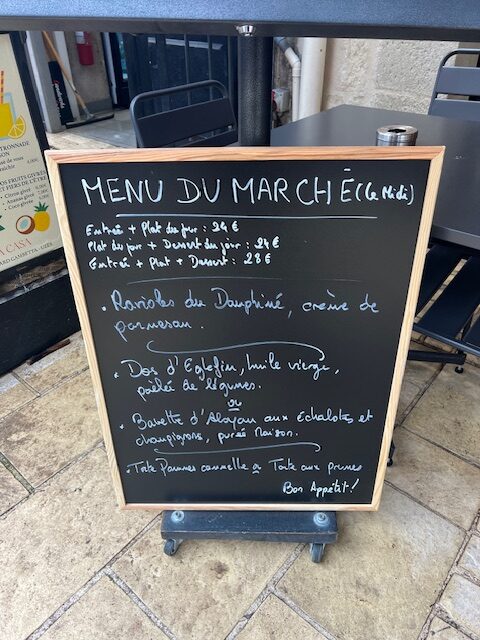 MENU DU MARCHÉ (Le Midi)
Entrée + Plat du jour : 24 €
Plat du jour + Dessert du jour : 24 €
Entrée + Plat + Dessert : 28 €
• Ravioles du Dauphiné, crème de
parmesan.
• Dos d'Eglefin, huile vierge,
poêlée de légumes.
ou
• Bavette d'Aloyau aux échalotes et
champignons, purée maison.
• Tarte Pommes cannelle ou Tarte aux prunes
Bon Appétit!
CITRONNADE
MAISON
4,00€
FRUITS GIVRÉS
- Citron givré
- Ananas givré
- Coco givré
CASA
GAMBETTA, UZÈS